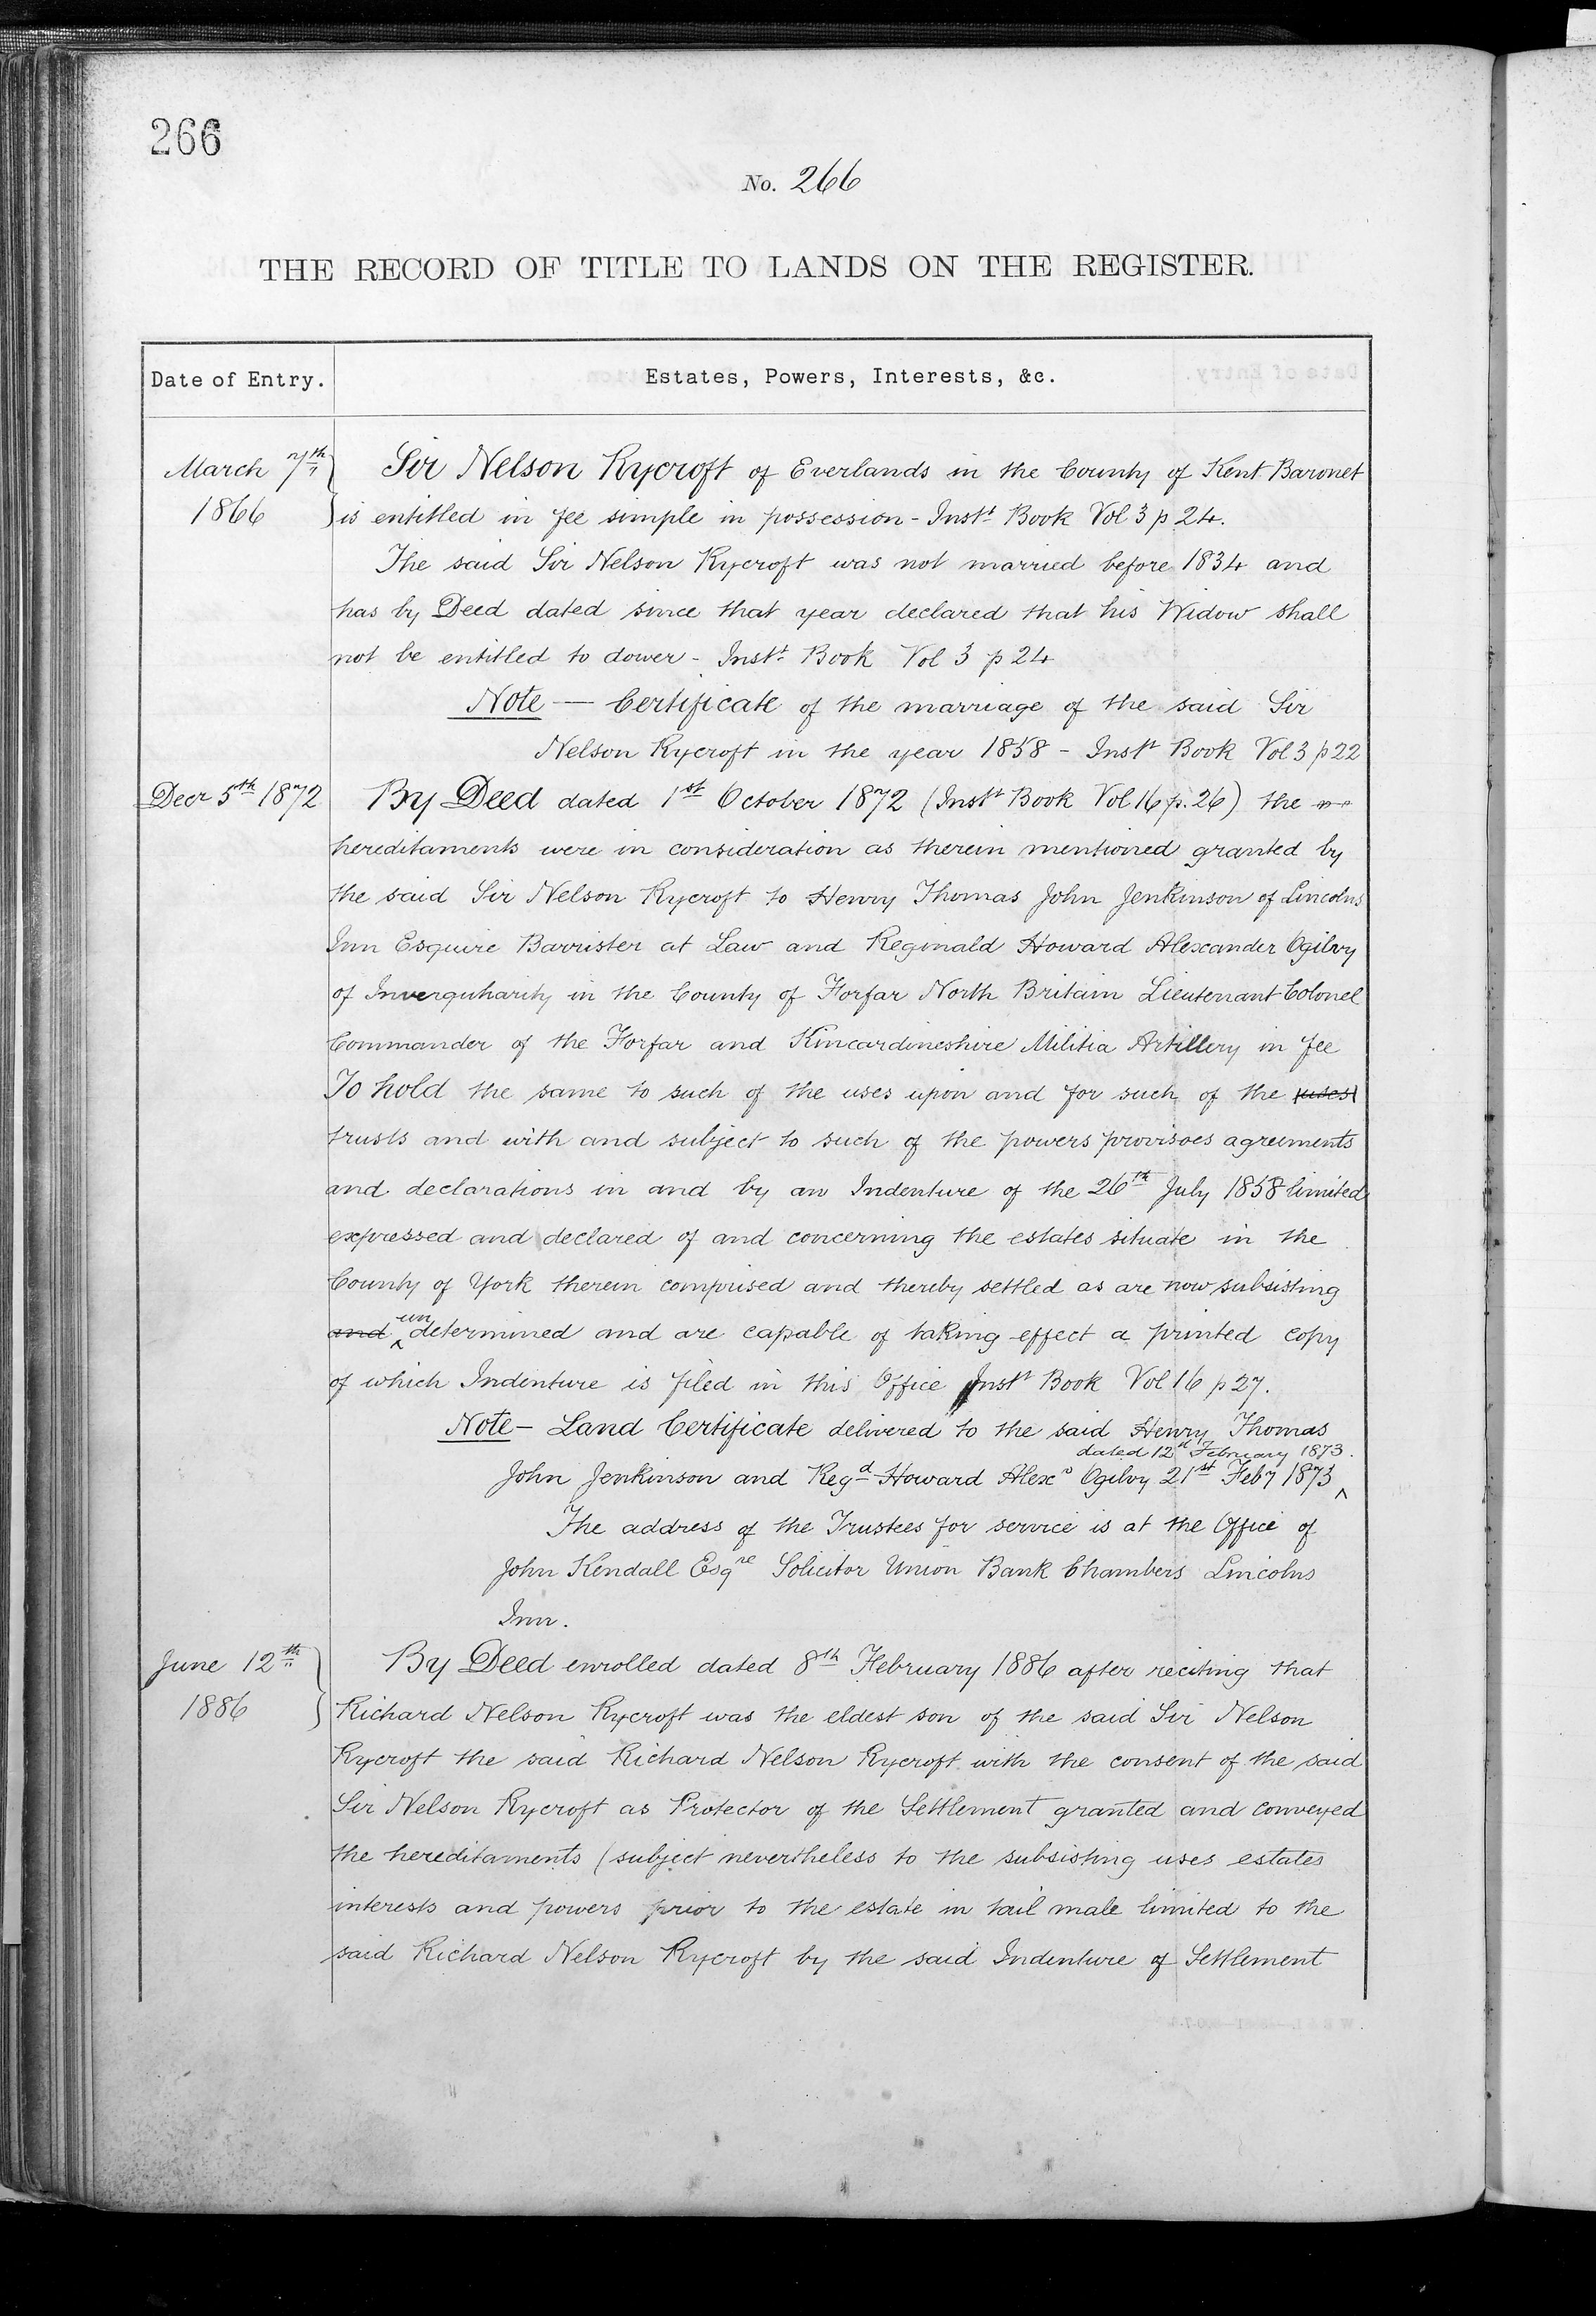 266
No. 266
THE RECORD OF TITLE TO LANDS ON THE REGISTER.
Date of Entry.
Estates, Powers, Interests, &c.
March 7th
1866
Sir Nelson Rycroft of Everlands in the County of Kent Baronet
is entitled in fee simple in possession - Instt Book Vol 3 p 24.
The said Sir Nelson Rycroft was not married before 1834 and
has by Deed dated since that year declared that his Widow shall
not be entitled to dower - Instt Book Vol 3 p 24
Note — Certificate of the marriage of the said Sir
Nelson Rycroft in the year 1858 - Instt Book Vol 3 p 22
Decr 5th 1872
By Deed dated 1st October 1872 (Instt Book Vol 16 p. 26) the
hereditaments were in consideration as therein mentioned granted by
the said Sir Nelson Rycroft to Henry Thomas John Jenkinson of Lincolns
Inn Esquire Barrister at Law and Reginald Howard Alexander Ogilvy
of Inverquharity in the County of Forfar North Britain Lieutenant Colonel
Commander of the Forfar and Kincardineshire Militia Artillery in fee
To hold the same to such of the uses upon and for such of the uses
trusts and with and subject to such of the powers provisoes agreements
and declarations in and by an Indenture of the 26th July 1858 limited
expressed and declared of and concerning the estates situate in the
County of York therein comprised and thereby settled as are now subsisting
and undetermined and are capable of taking effect a printed copy
of which Indenture is filed in this Office Instt Book Vol 16 p 27.
Note - Land Certificate delivered to the said Henry Thomas
dated 12th February 1873.
John Jenkinson and Regd Howard Alexr Ogilvy 21st Feby 1873
The address of the Trustees for service is at the Office of
John Kendall Esqre Solicitor Union Bank Chambers Lincolns
Inn.
June 12th
1886
By Deed enrolled dated 8th February 1886 after reciting that
Richard Nelson Rycroft was the eldest son of the said Sir Nelson
Rycroft the said Richard Nelson Rycroft with the consent of the said
Sir Nelson Rycroft as Protector of the Settlement granted and conveyed
the hereditaments (subject nevertheless to the subsisting uses estates
interests and powers prior to the estate in tail male limited to the
said Richard Nelson Rycroft by the said Indenture of Settlement